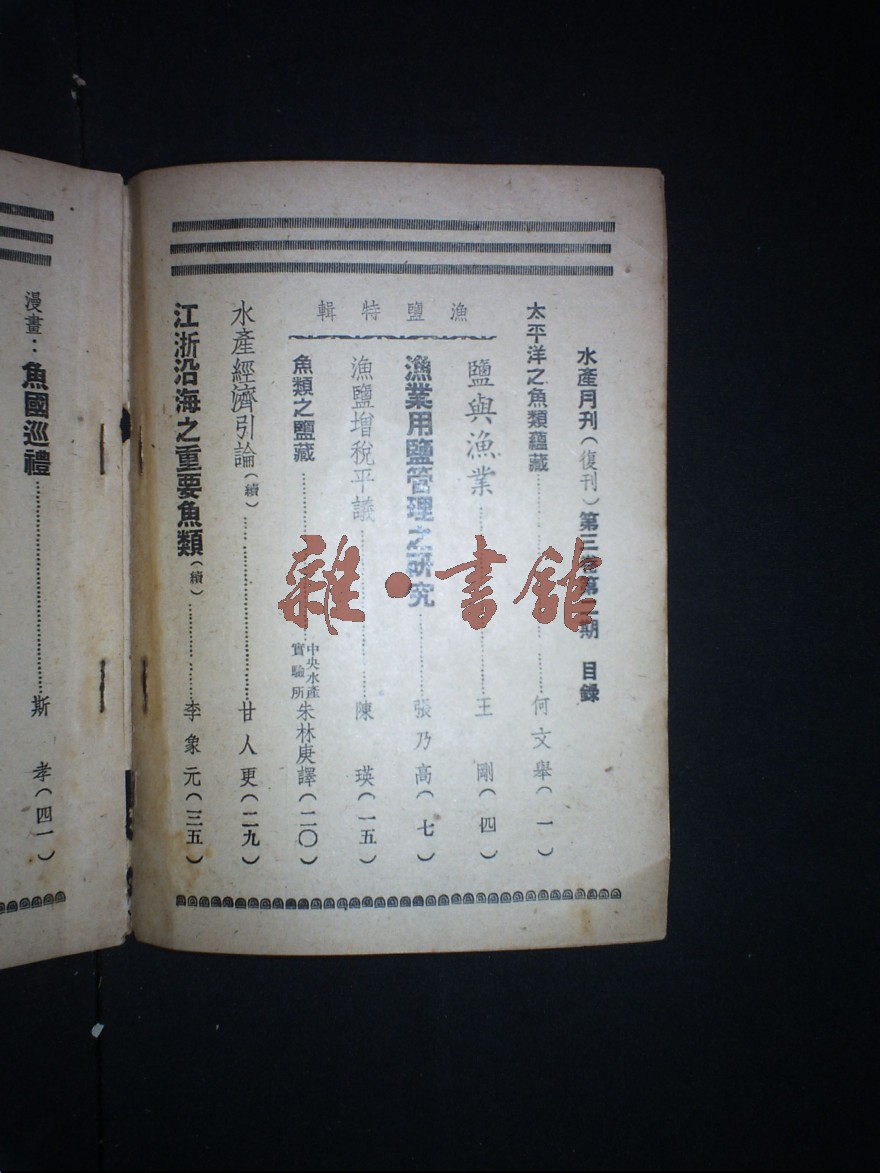 水產月刊(復刊)第三卷第二期 目錄
太平洋之魚類蘊藏……何文舉(一)
漁鹽特輯
鹽與漁業……王剛(四)
漁業用鹽管理之研究……張乃高(七)
漁鹽增稅平議……陳瑛(一五)
魚類之鹽藏……中央水產實驗所朱林庚譯(二〇)
水產經濟引論(續)……甘人更(二九)
江浙沿海之重要魚類(續)……李象元(三五)
漫畫:魚國巡禮……斯孝(四一)
雜·書館